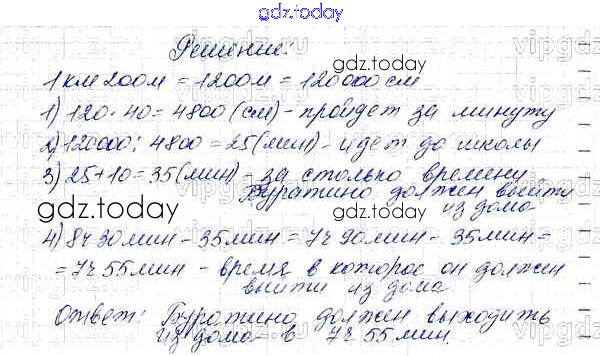 gdz.today
Решение:
1 км 200м = 1200м = 120000 см
1) 120 · 40 = 4800 (см) - пройдет за минуту
2) 120000 : 4800 = 25 (мин) - идет до школы
3) 25 + 10 = 35 (мин) - за столько времени
Буратино должен выйти
gdz.today
из дома
gdz.today
4) 8ч 30мин - 35мин = 7ч 90мин - 35мин =
= 7ч 55мин - время в которое он должен
выйти из дома
Ответ: Буратино должен выходить
из дома в 7ч 55мин.
gdz.today